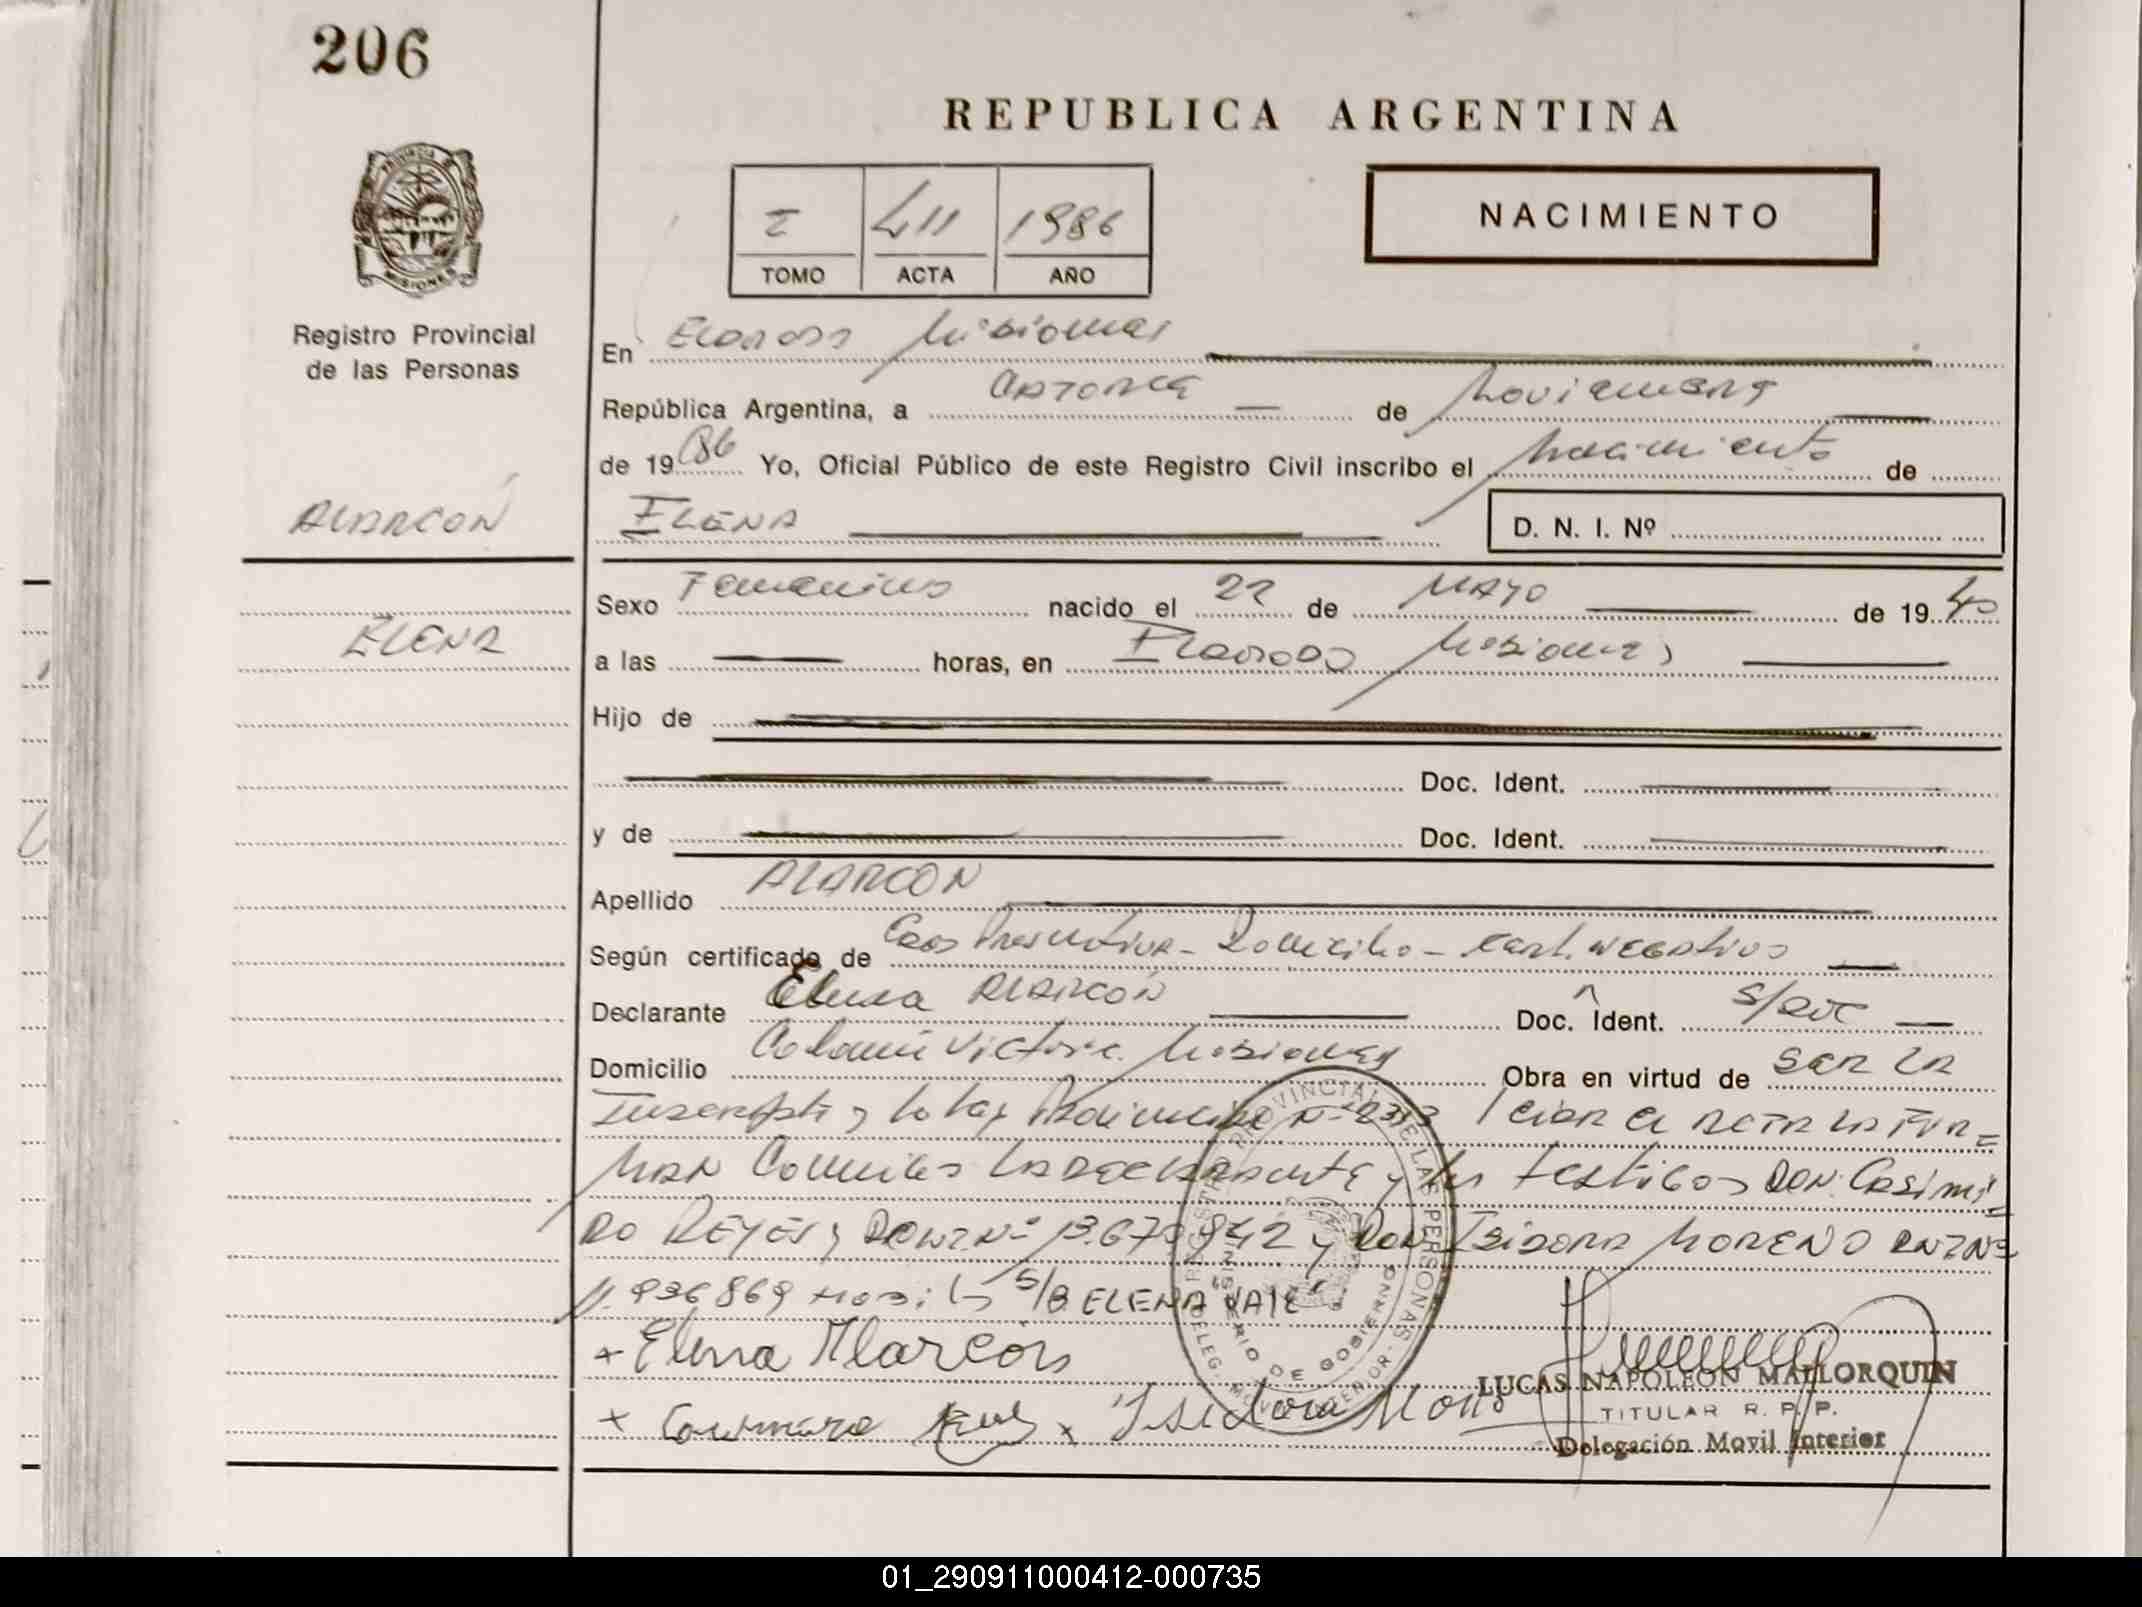 206
REPUBLICA ARGENTINA
PROVINCIA DE
MISIONES
I 411 1986
TOMO ACTA AÑO
NACIMIENTO
Registro Provincial
de las Personas
En Eldorado Misiones
República Argentina, a catorce de Noviembre
de 1986 Yo, Oficial Público de este Registro Civil inscribo el Nacimiento de
ALARCON
ELENA
D. N. I. Nº
ELENA
Sexo Femenino nacido el 22 de MAYO de 1940
a las horas, en Eldorado Misiones
Hijo de
Doc. Ident.
y de Doc. Ident.
Apellido ALARCON
Según certificado de Edad Presuntiva - Domicilio - cert. negativo
Declarante Elena ALARCON Doc. Ident. S/DOC
Domicilio Colonia Victoria Misiones Obra en virtud de SER LA
Inscripta y la Ley Provincial Nº 2313 Leida el ACTA LA FIR=
MAN Conmigo LA DECLARANTE y los testigos DON Casimi
RO REYES, DNI Nº 13.679.842 y Don Isidora MORENO DNI Nº
936869 S/B. ELENA "VALE"
x Elena Alarcón
x Casimiro x Isidora
REGISTRO PROVINCIAL DE LAS PERSONAS
MINISTERIO DE GOBIERNO
DELEG. MOVIL INTERIOR
LUCAS NAPOLEON MALLORQUIN
TITULAR R. P. P.
Delegación Movil Interior
01_290911000412-000735